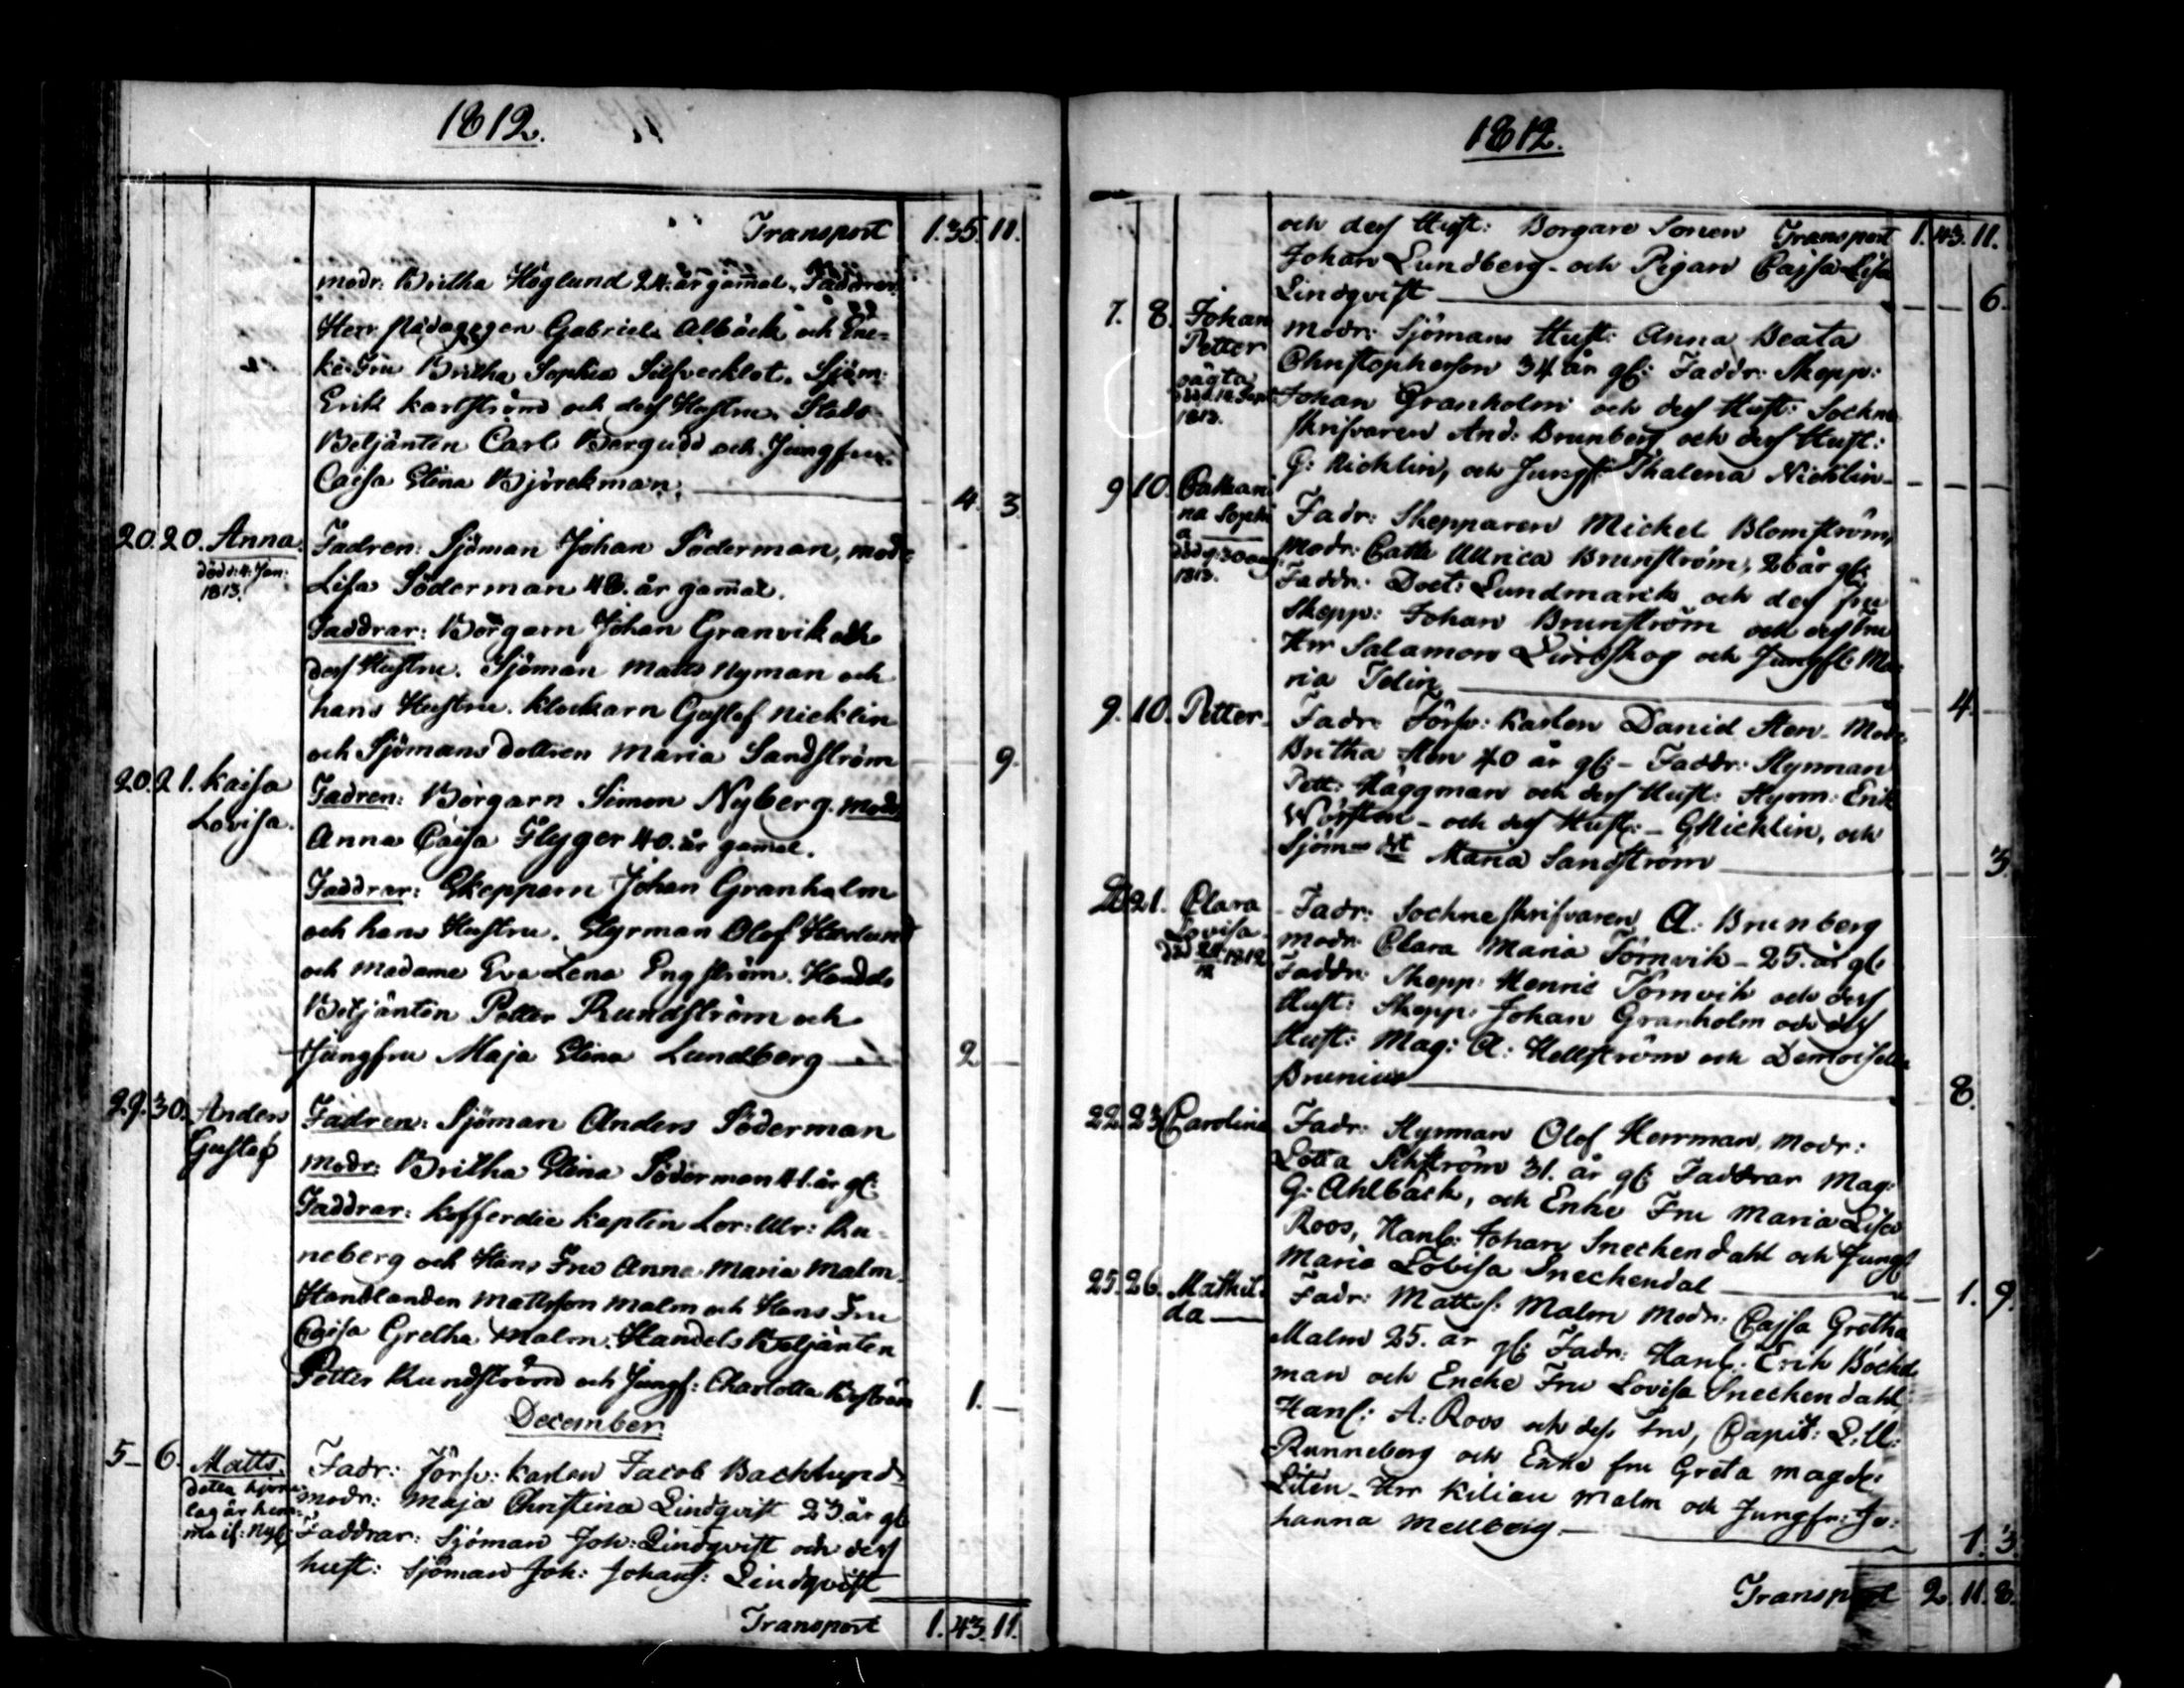 1812.
Transport 1.35.11.
modr: Britha Höglund 24. år gam̄al. Faddrar.
Herr Pädagogen Gabriel Albäck och Enke-
ke Fru Britha Sophia Silfverklot. Sjöm:
Erik Karlström och dess Hustru. Stads
Betjänten Carl Bergudd och Jungfru
Caisa Stina Björckman. 4. 3.
20. 20. Anna. Fadren: Sjöman Johan Söderman, modr:
död: 4. Jan: 1813. Lisa Söderman 48. år gam̄al.
Faddrar: Borgarn Johan Granvik och
dess Hustru. Sjöman Matts Nyman och
hans Hustru. Klockarn Gustaf Nicklin
och Sjömans dottren Maria Sandström 9.
20. 21. Kaisa Fadren: Borgarn Simon Nyberg. Modr
Lovisa. Anna Caisa Flyger 40. år gam̄al.
Faddrar: Skepparn Johan Granholm
och hans Hustru. Styrman Olof
och Madame Eva Lena Engström. Handels
Betjänten Petter Rundström och
Jungfru Maja Stina Lundberg 2
29. 30. Anders Fadren: Sjöman Anders Söderman
Gustaf Modr: Britha Stina Söderman 41. år gl:
Faddrar: Kofferdie Kapten Lor: Ulr: Ru-
neberg och Hans Fru Anna Maria Malm.
Handlanden Mattsson Malm och Hans Fru
Caisa Gretha Malm. Handels Betjänten
Petter Rundström och Jungf: Charlotta 1.
December.
5 6. Matts. Fadr: Förs: Karlen Jacob Backlund
modr: Maja Christina Lindqvist 23. år gl
Faddrar: Sjöman Joh: Lindqvist och dess
hust: Sjöman Joh: Johans: Lindqvist
Transport 1.43.11.
1812.
och dess Hust: Borgare Sonen Transport 1.43.11.
Johan Lundberg och Pigan Cajsa Lisa
Lindqvist 6.
7. 8. Johan Modr: Sjömans Hust: Anna Beata
Petter Christopherson 34 år gl: Faddr: Skepp:
oägta Johan Granholm och dess Hust: Sockne
död d. 12 Sept 1813. skrifvaren And: Brunberg och dess Hust:
G: Nicklin, och Jungf: Thalena Nicklin
9 10. Catharina Sophia Fadr: Skepparen Michel Blomström,
död d: 30 aug 1813. Modr: Cath Ullrica Brunström, 26 år gl:
Faddr: Doct: Lundmarck och dess fru
Skepp: Johan Brunström och dess Fru
Hrr Salamon Lindskog och Jungf: Ma-
ria Telin 4.
9. 10. Petter Fadr: Förs: Karlen Daniel Sten. Modr
Britha Sten 40 år gl: Faddr: Styrman
Pett: Häggman och dess Hust: Styrm: Erik
och dess Hust: GNicklin, och
Sjöm drt Maria Sandström 3.
20. 21. Clara Fadr: Sockneskrifvaren A: Brunberg
Lovisa. Modr: Clara Maria Törnvik 25. år gl:
död 24/12 1812 Faddr: Skepp: Henric Törnvik och dess
Hust: Skepp: Johan Granholm och dess
Hust: Mag: A: Hellström och Demoiselle
Brunius 8.
22. 23 Carolina Fadr: Styrman Olof Herrman, Modr:
Lotta 31. år gl: Faddrar Mag:
G: Ahlbäck, och Enke Fru Maria Lisa
Roos, Hanl: Johan Sneckendahl och Jungf
Maria Lovisa Sneckendal 1. 9.
25. 26. Mathil- Fadr: Matts: Malm Modr: Cajsa Gretha
da Malm 25. år gl: Fadr: Hanl: Erik Böckel-
man och Encke Fru Lovisa Sneckendahl,
Hanl: A: Roos och dess Fru, Capit: L:U:
Runneberg och Enke fru Greta Magdl:
Liten. Hrr Kilian Malm och Jungfr: Jo-
hanna Mellberg 1. 3.
Transport 2. 11. 8.